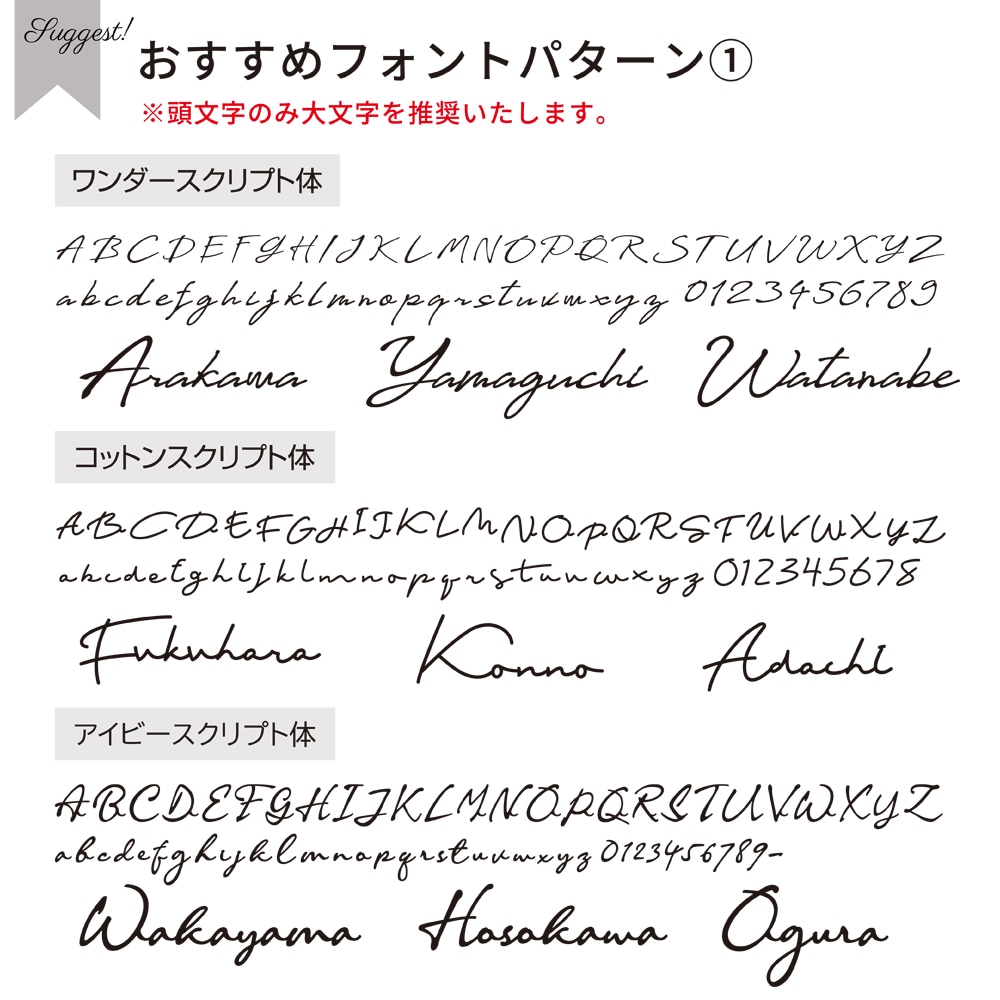 Suggest!
おすすめフォントパターン①
※頭文字のみ大文字を推奨いたします。
ワンダースクリプト体
ABCDEFGHIJKLMNOPQRSTUVWXYZ
abcdefghijklmnopqrstuvwxyz 0123456789
Arakawa Yamaguchi Watanabe
コットンスクリプト体
ABCDEFGHIJKLMNOPQRSTUVWXYZ
abcdefghijklmnopqrstuvwxyz 012345678
Fukuhara Konno Adachi
アイビースクリプト体
ABCDEFGHIJKLMNOPQRSTUVWXYZ
abcdefghijklmnopqrstuvwxyz 0123456789-
Wakayama Hosokawa Ogura